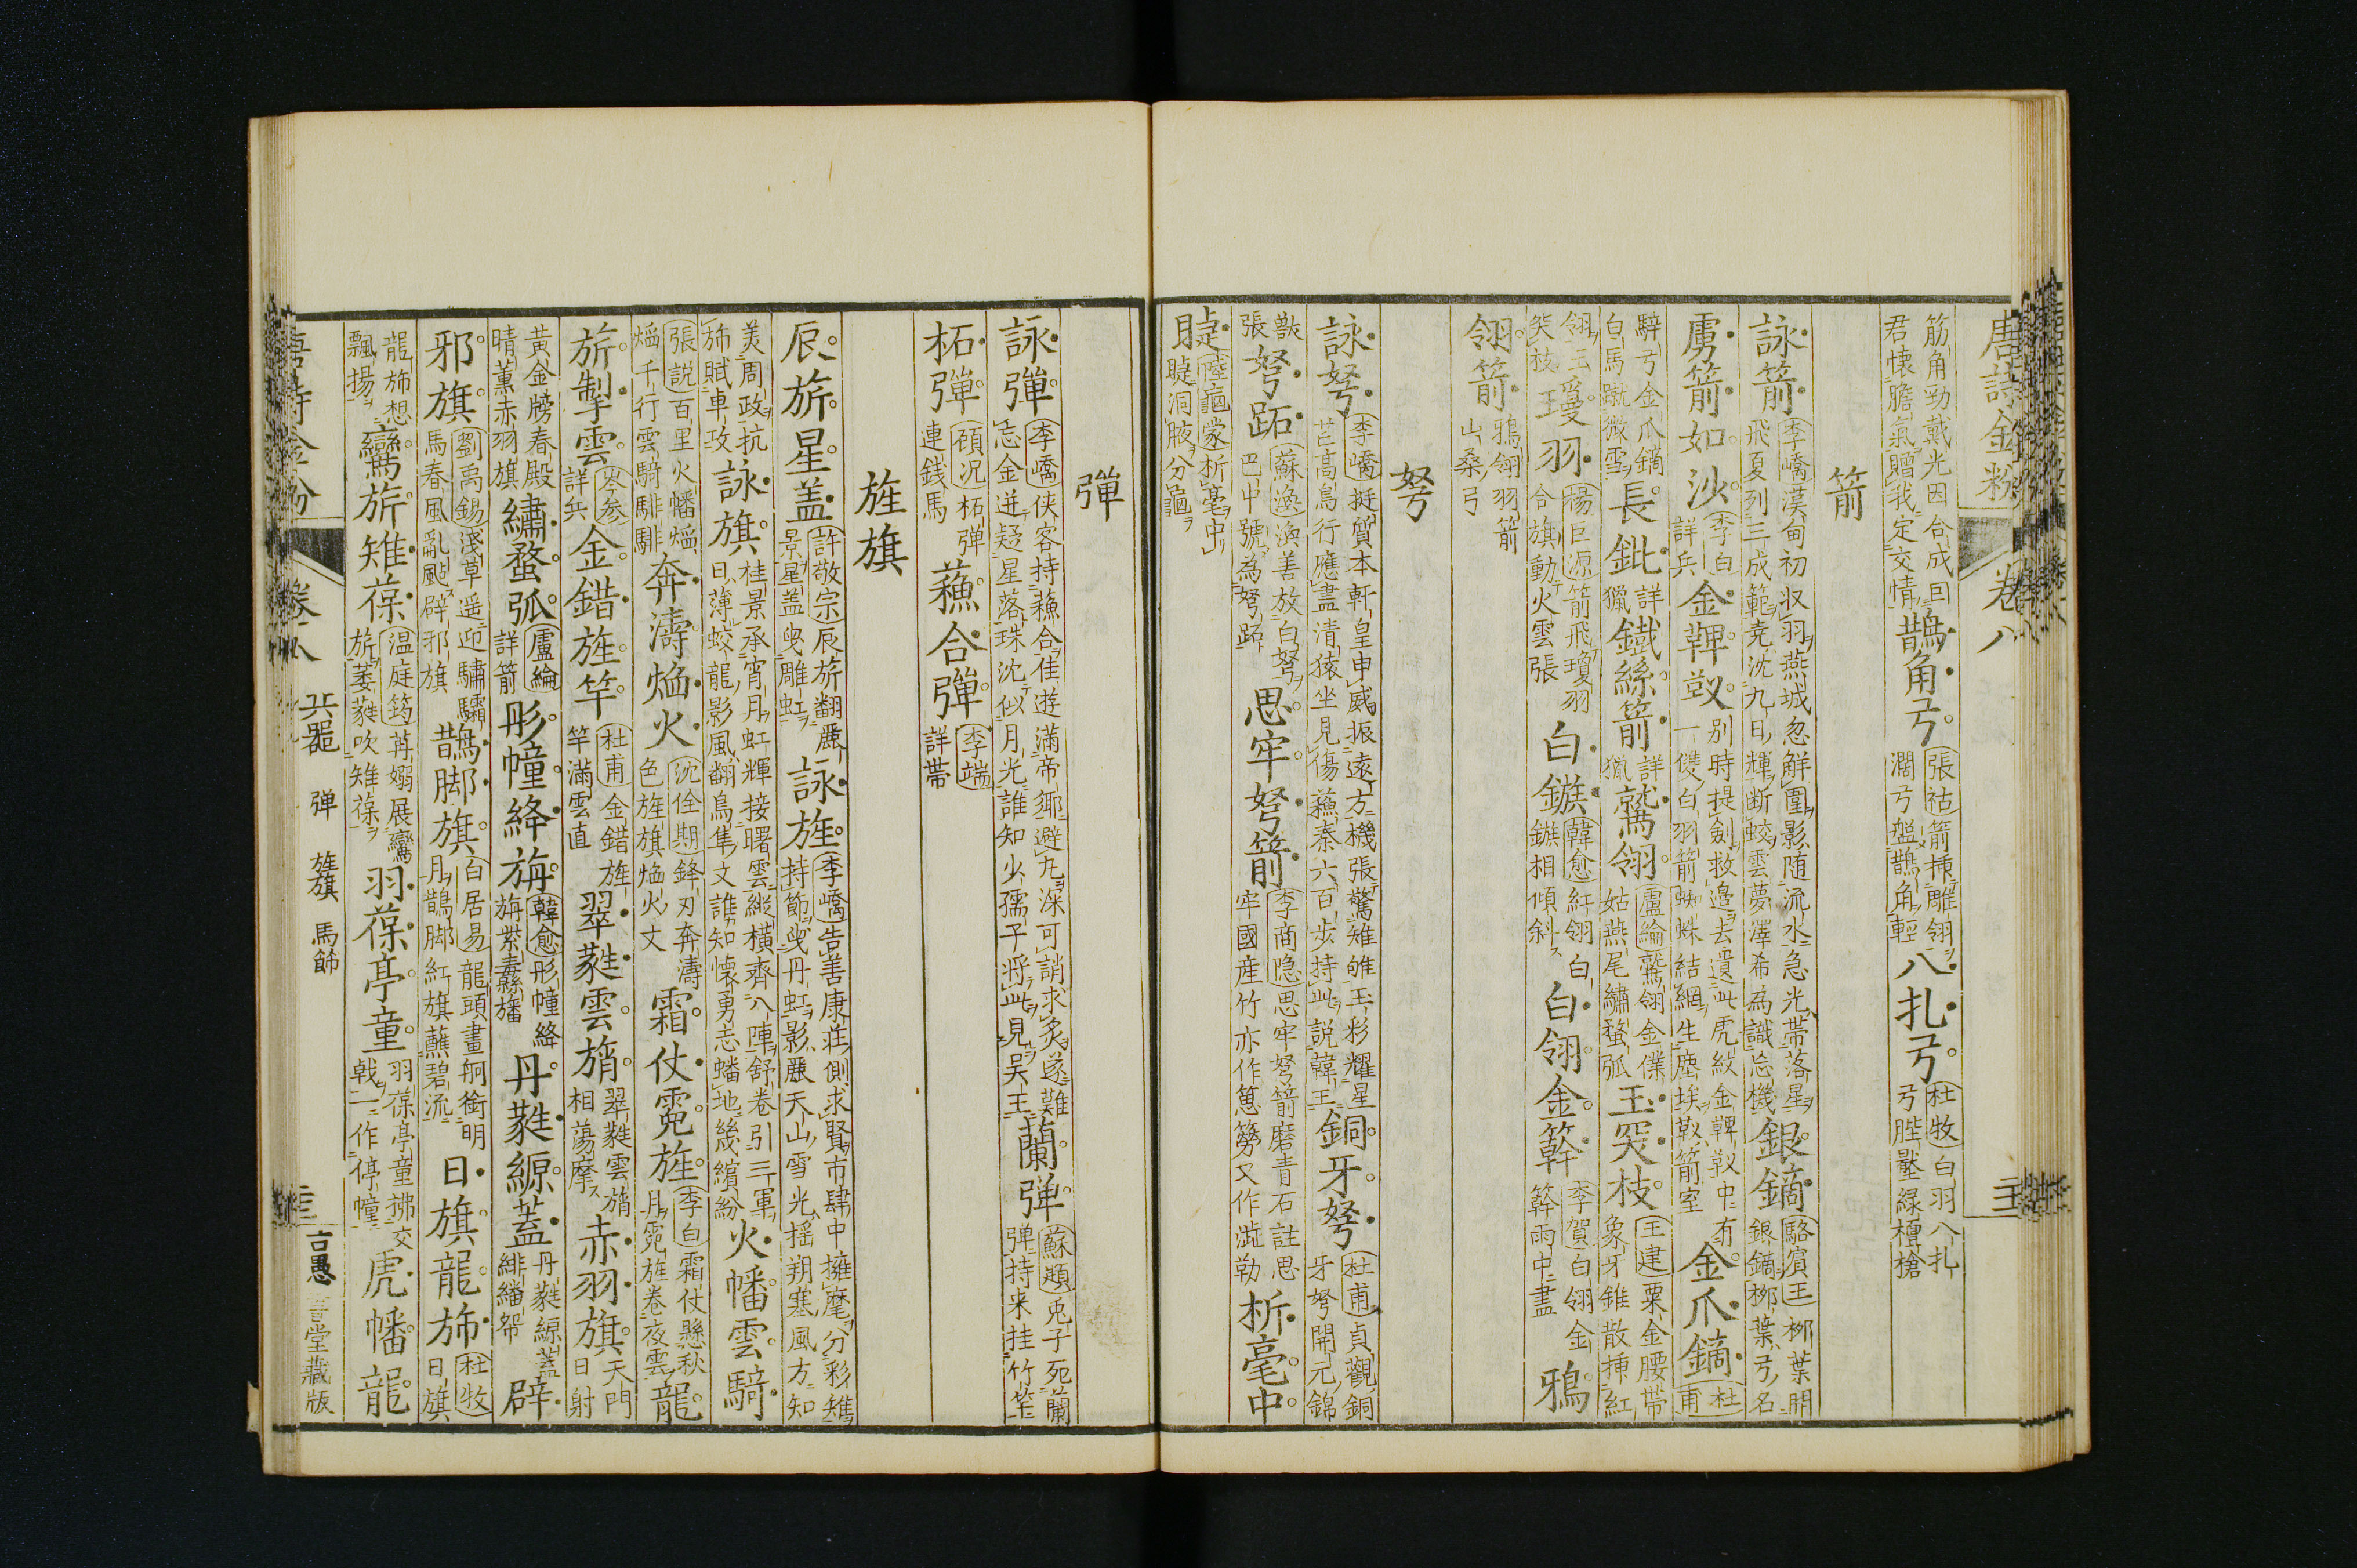 唐詩金粉 卷八
筋角勁戴光因合成回
君懷膽氣贈我定交情
鵲角弓
張祜箭揷雕翎
濶弓盤鵲角輕
八扎弓
杜牧白羽八扎
弓䏶壓緑檀槍
箭
詠箭
李嶠漢甸初収羽燕城忽解圍影随流水急光帯落星
飛夏列三成範尭沈九日輝断蛟雲夢澤希為識忘機
銀鏑
駱賓王柳葉開
銀鏑柳葉弓名
虜箭如沙
李白
詳兵
金鞞靫
别時提劍救邉去遺此虎紋金鞞靫中有
一雙白羽箭蜘蛛結網生塵埃靫箭室
金爪鏑
杜
甫
騂弓金爪鏑
白馬蹴微雪
長鈚
詳
獵
鐵絲箭
詳
獵
鷲翎
盧綸鷲翎金僕
姑燕尾繡蝥弧
玉突枝
王建粟金腰帯
象牙錐散揷紅
翎玉
突枝
瓊羽
楊巨源箭飛瓊羽
合旗動火雲張
白鏃
韓愈紅翎白
鏃相傾斜
白翎金簳
李賀白翎金
簳雨中盡
鴉
翎箭
鴉翎羽箭
山桑弓
弩
詠弩
李嶠挺質本軒皇申威振遠方機張驚雉雊玉彩耀星
芒高鳥行應盡清猿坐見傷蘓秦六百歩持此説韓王
銅牙弩
杜甫貞觀銅
牙弩開元錦
獸
張
弩跖
蘇渙渙善放白弩
巴中號為弩跖
思牢弩箭
李商隠思牢弩箭磨青石註思
牢國産竹亦作䓗簩又作澁勒
析毫中
睫
陸龜蒙析毫中
睫洞腋分龜
彈
詠彈
李嶠侠客持蘓合佳遊滿帝郷避丸深可誚求炙遂難
忘金迸疑星落珠沈似月光誰知少孺子将此見呉王
蘭弾
蘇頲兎子死蘭
弾持来挂竹竿
柘彈
顧况柘弾
連銭馬
蘓合彈
李端
詳帯
旌旗
辰旂星盖
許敬宗辰旂翻麗
景星盖曳雕虹
詠旌
李嶠告善康莊側求賢市肆中擁麾分彩雉
持節曳丹虹影麗天山雪光揺朔塞風方知
美周政抗
斾賦車攻
詠旗
桂景承宵月虹輝接曙雲縦横齊八陣舒卷引三軍
日薄蛟龍影風翻鳥隼文誰知懐勇志蟠地幾繽紛
火幡雲騎
張説百里火幡㷔
㷔千行雲騎騑騑
奔濤㷔火
沈佺期鋒刃奔濤
色旌旗㷔火文
霜仗霓旌
李白霜仗懸秋
月霓旌卷夜雲
龍
旂掣雲
岑参
詳兵
金錯旌竿
杜甫金錯旌
竿滿雲直
翠蕤雲䈰
翠蕤雲䈰
相蕩摩
赤羽旗
天門
日射
黄金牓春殿
晴薫赤羽旗
繡蝥弧
盧綸
詳箭
彤幢絳旃
韓愈彤幢絳
旃紫纛旛
丹蕤縓蓋
丹蕤縓蓋
緋繙帤
辟
邪旗
劉禹錫淺草遥迎驌驦
馬春風亂颭辟邪旗
鵲脚旗
白居易龍頭畫舸銜明
月鵲脚紅旗蘸碧流
日旗龍斾
杜牧
日旗
龍斾想
飄揚
鸞旂雉葆
温庭筠苒嫋展鸞
旂萎蕤吹雉葆
羽葆亭童
羽葆亭童拂交
戟一作停幢
虎幡龍
唐詩金粉 卷八 兵器 弾 旌旗 馬飾 古愚書堂藏版